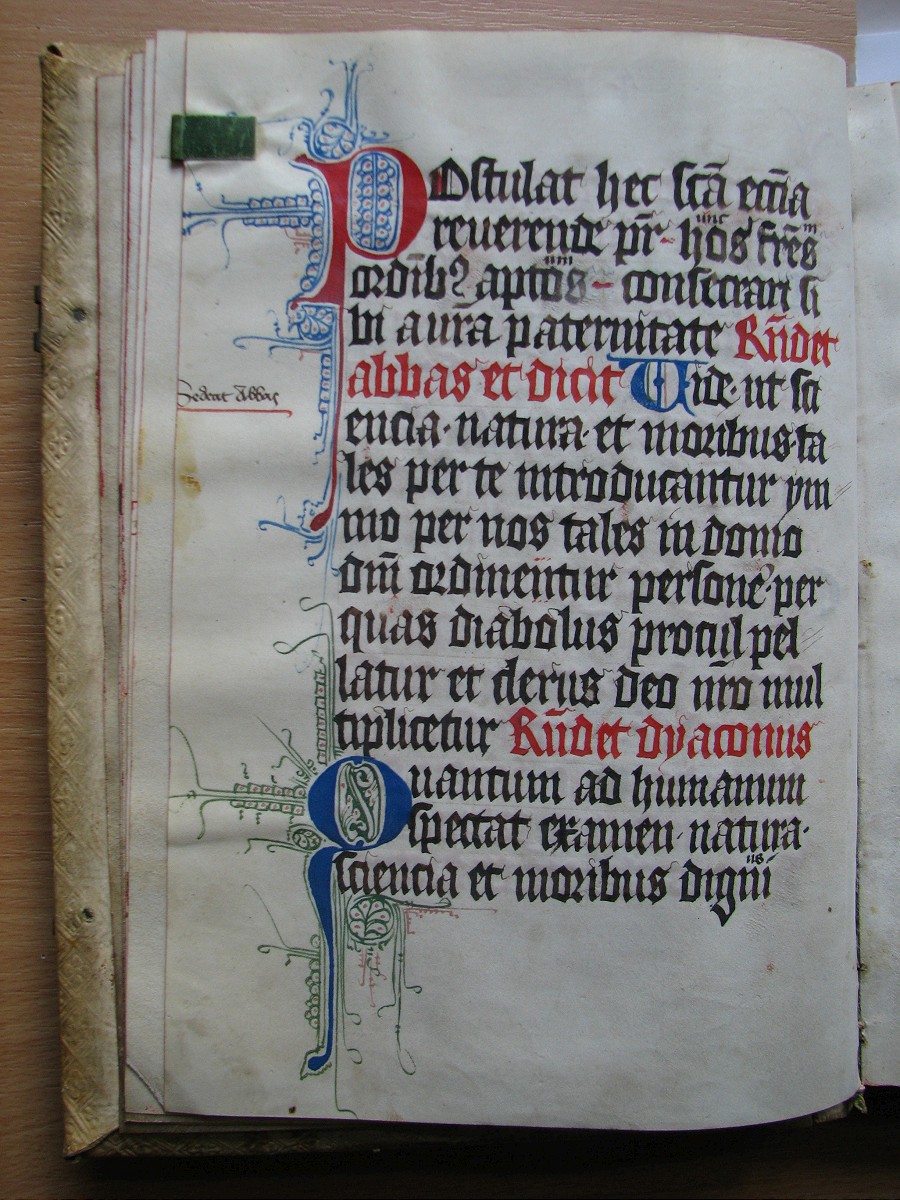 Postulat hec sc̄a ecc̄ia
reuerende pr̄ hos fr̄es
ordīb⁹ aptos consecrari si
bi a ur̄a paternitate Rn̄det
abbas et dicit Uide ut sci
encia natura et moribus ta
les per te introducantur ym
mo per nos tales in domo
dn̄i ordinentur persone per
quas diabolus procul pel
latur et clerus deo nr̄o mul
tiplicetur Rn̄det dyaconus
Quantum ad humanum
spectat examen natura
sciencia et moribus digni
Sedeat Abbas